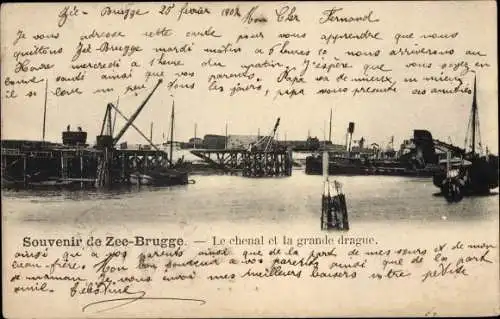 Zée-Brugge 25 février 1902 Mon Cher Fernand
Je vous adresse cette carte pour vous apprendre que nous
quittons Zée-Brugge mardi matin a 5 heures 10 nous arriverons au
Havre mercredi a 1 heure du matin. J'espère que vous êtes en
bonne santé ainsi que vos parents. Papa va de mieux, en mieux,
il se lève un peu tous les jours, papa vous présente ses amitiés
Souvenir de Zee-Brugge. — Le chenal et la grande drague.
ainsi qu'a vos parents ainsi que de la part de mes sœurs et de mon
beau-frère. Mon bon souvenir a vos parents ainsi que de la part
de maman. Je vous envoie mes meilleurs baisers votre petite
amie.